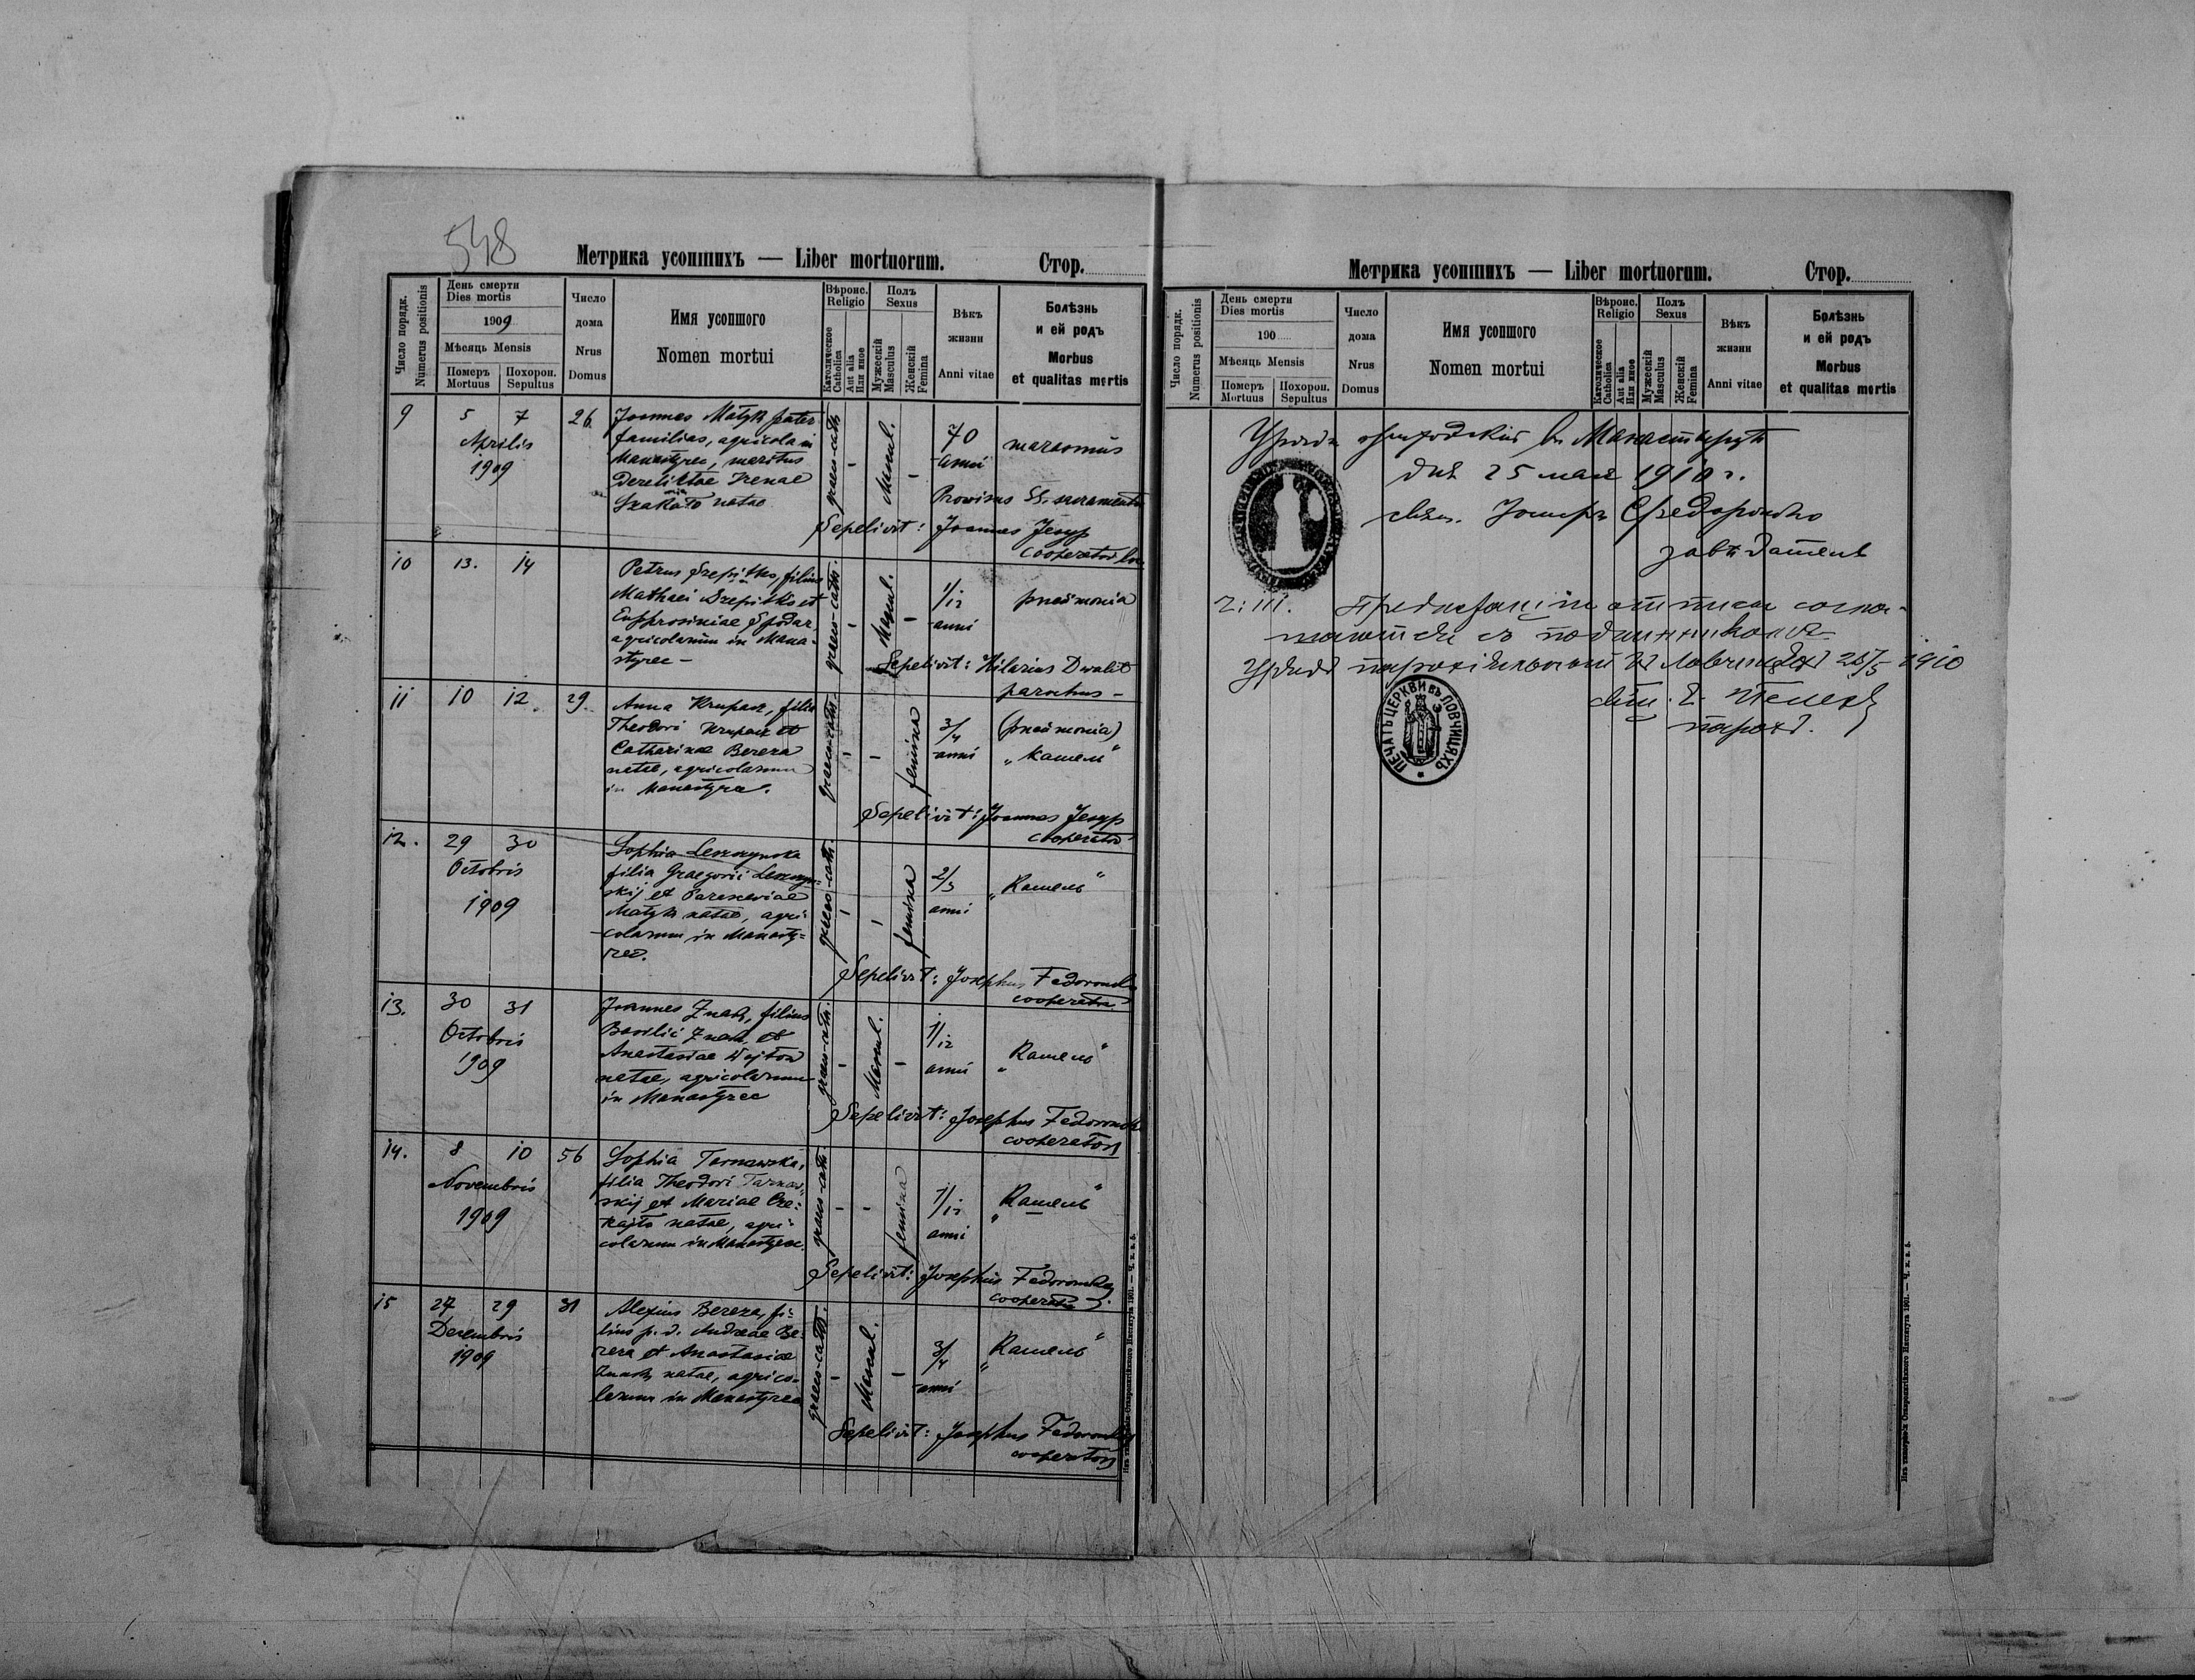 548
Метрика усопшихъ — Liber mortuorum.
Стор.
Число порядк.
Numerus positionis
День смерти
Dies mortis
1909
Мѣсяць Mensis
Померъ
Mortuus
Похорон.
Sepultus
Число
дома
Nrus
Domus
Имя усопшого
Nomen mortui
Вѣроис.
Religio
Католическое
Catholica
Aut alia
Или иное
Полъ
Sexus
Мужескій
Masculus
Женскій
Femina
Вѣкъ
жизни
Anni vitae
Болѣзнь
и ей родъ
Morbus
et qualitas mortis
9
5 7
Aprilis
1909
26
Joannes Matyk pater
familias, agricola in
Manastyrec, maritus
derelictae Irenae
natae
graeco-cath.
-
Mascul.
-
70
anni
marasmus
Provisus SS. sacramentis
Sepelivit: Joannes Jesyp
cooperator loc.
10
13. 14
Petrus filius
Mathaei et
Euphrosiniae
agricolarum in Mana-
styrec -
graeco-cath.
-
Mascul.
-
1/12
anni
pneumonia
Sepelivit: Hilarius Dwulit
parochus -
11
10 12.
29.
Anna Krupacz, filia
Theodori Krupacz et
Catharinae Bereza
natae, agricolarum
in Manastyrec.
graeco-cath.
-
-
femina
3/4
anni
(pneumonia)
„кашель“
Sepelivit: Joannes Jesyp
cooperator
12.
29 30
Octobris
1909
Sophia Leszczynska
filia Graegorii Leszczyn=
skij et Parasceviae
Matyk natae, agri-
colarum in Manasty=
rec.
graeco-cath.
-
-
femina
2/3
anni
„Кашель“
Sepelivit: Josephus Fedoronko
cooperator
13.
30 31
Octobris
1909
Joannes Znak, filius
Basilii Znak et
Anastasiae Wojtow
natae, agricolarum
in Manastyrec
graeco-cath.
-
Mascul.
-
1/12
anni
„Кашель“
Sepelivit: Josephus Fedoronko
cooperator
14.
8 10
Novembris
1909
56
Sophia Tarnawska,
filia Theodori Tarnaw-
skij et Mariae
natae, agri-
colarum in Manastyrec.
graeco-cath.
-
-
femina
1/12
anni
„Кашель“
Sepelivit: Josephus Fedoronko
cooperator
15
27 29
Decembris
1909
31
Alexius Bereza, fi-
lius p. d. Andreae Be-
reza et Anastasiae
Znak natae, agrico-
larum in Manastyrec
graeco-cath.
-
Mascul.
-
3/4
anni
„Кашель“
Sepelivit: Josephus Fedoronko
cooperator
Изъ типографіи Ставропигійского Института 1901. — Ч. к. в. 5.
Метрика усопшихъ — Liber mortuorum.
Стор.
Число порядк.
Numerus positionis
День смерти
Dies mortis
190
Мѣсяць Mensis
Померъ
Mortuus
Похорон.
Sepultus
Число
дома
Nrus
Domus
Имя усопшого
Nomen mortui
Вѣроис.
Religio
Католическое
Catholica
Aut alia
Или иное
Полъ
Sexus
Мужескій
Masculus
Женскій
Femina
Вѣкъ
жизни
Anni vitae
Болѣзнь
и ей родъ
Morbus
et qualitas mortis
в Манастирци
дня 25 мая 1910 г.
Іосифъ Федоронко
завѣдатель
ч: 111.
с подлинником
Урядъ парохіяльный 25/5 1910
парох.
ПЕЧАТЬ ЦЕРКВИ ВЪ ЛОВЧИЦЯХЪ
Изъ типографіи Ставропигійского Института 1901. — Ч. к. в. 5.